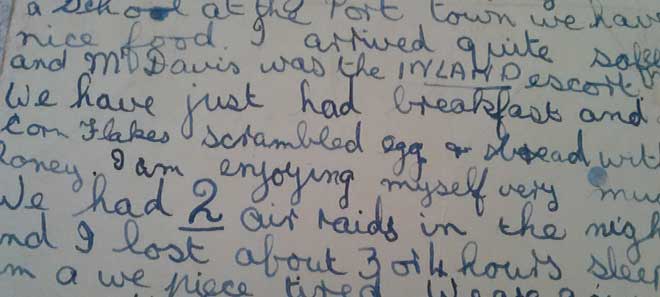 a school at the Port town we hav
nice food. I arrived quite safe
and Mr Davis was the INLAND escort
We have just had breakfast and
Corn Flakes scrambled egg & bread wit
honey. I am enjoying myself very muc
We had 2 air raids in the nigh
nd I lost about 3 or 4 hours sleep
m a we piece tired